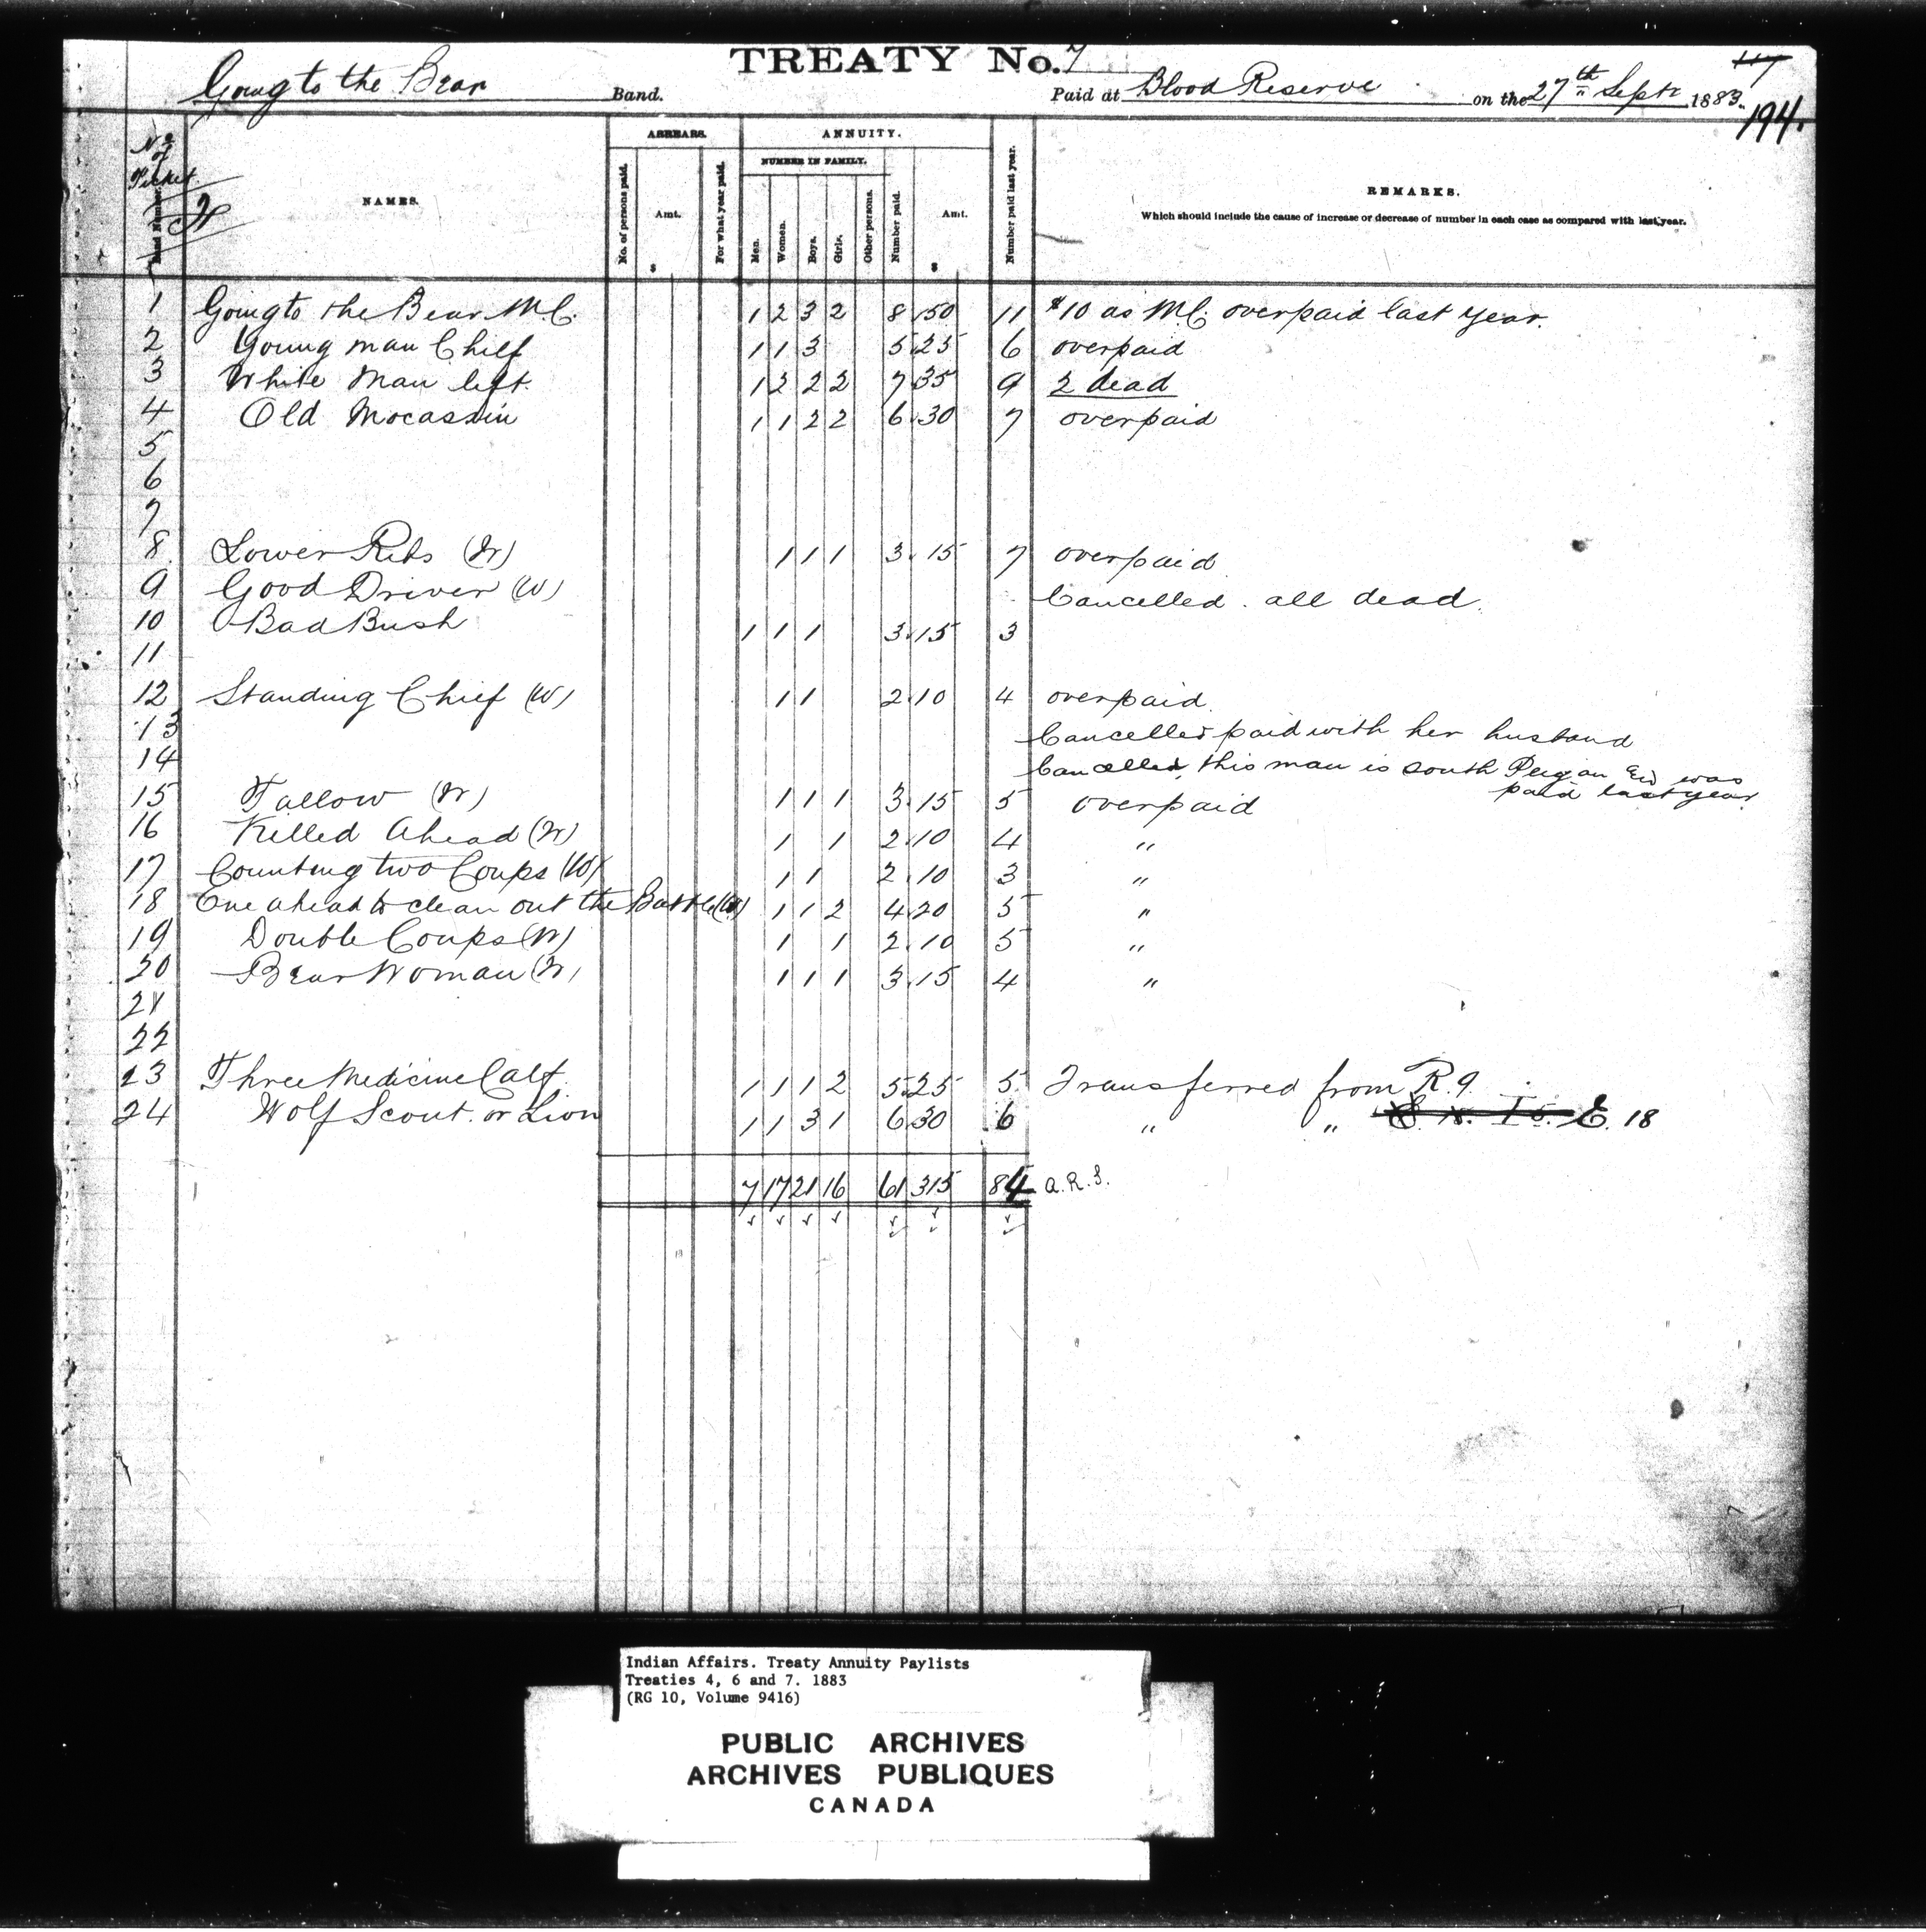 TREATY No. 7
117
Going to the Bear Band. Paid at Blood Reserve on the 27th Septr 1883.
194.
No of Ticket
Band Number.
W
NAMES.
ARREARS.
No. of persons paid.
Amt.
$
For what year paid.
ANNUITY.
NUMBER IN FAMILY.
Men.
Women.
Boys.
Girls.
Other persons.
Number paid.
Amt.
$
Number paid last year.
REMARKS.
Which should include the cause of increase or decrease of number in each case as compared with last year.
1 Going to the Bear M.C. 1 2 3 2 8 50 11 $10 as M.C. overpaid last year.
2 Young man Chief 1 1 3 5 25 6 overpaid
3 White Man left. 1 2 2 2 7 35 9 2 dead
4 Old Mocassin 1 1 2 2 6 30 7 overpaid
5
6
7
8 Lower Ribs (W) 1 1 1 3 15 7 overpaid
9 Good Driver (W) Cancelled. all dead.
10 Bad Bush 1 1 1 3 15 3
11
12 Standing Chief (W) 1 1 2 10 4 overpaid.
13 Cancelled paid with her husband
14 Cancelled, this man is south Peigan & was
paid last year
15 Tallow (W) 1 1 1 3 15 5 overpaid
16 Killed Ahead (W) 1 1 2 10 4 "
17 Counting two Coups (W) 1 1 2 10 3 "
18 One ahead to clean out the Battle (W) 1 1 2 4 20 5 "
19 Double Coups (W) 1 1 2 10 5 "
20 Bear Woman (W) 1 1 1 3 15 4 "
21
22
23 Three Medicine Calf. 1 1 1 2 5 25 5 Transferred from R. 9.
24 Wolf Scout. or Lion 1 1 3 1 6 30 6 " " E. 18
7 17 21 16 61 315 84 a.R.S.
Indian Affairs. Treaty Annuity Paylists
Treaties 4, 6 and 7. 1883
(RG 10, Volume 9416)
PUBLIC ARCHIVES
ARCHIVES PUBLIQUES
CANADA